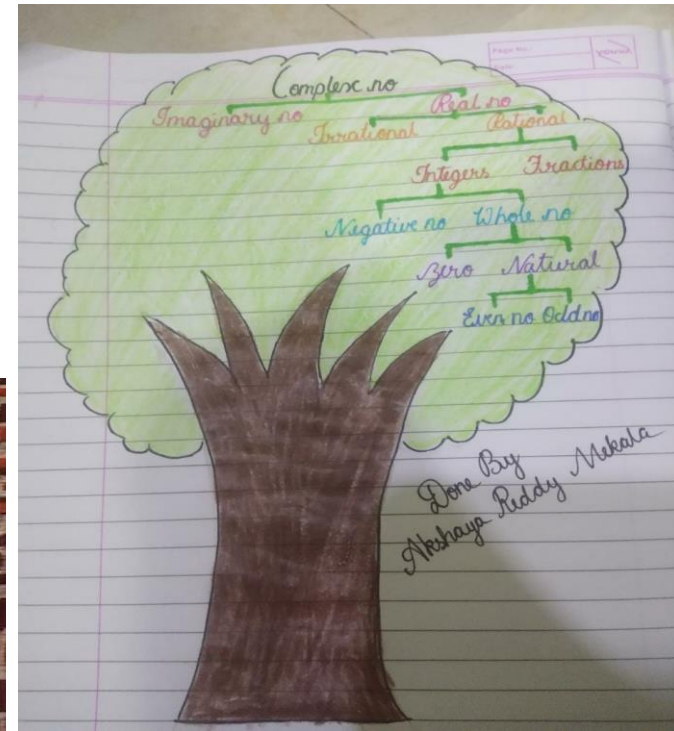 Complex no
Imaginary no Real no
Irrational Rational
Integers Fractions
Negative no Whole no
Zero Natural
Even no Odd no
Done By
Akshaya Reddy Mekala
Page No.
Date